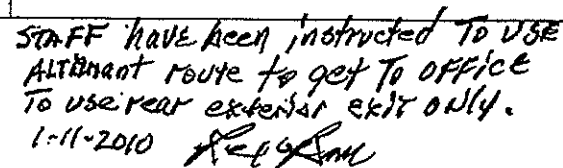 STAFF have been instructed To USE
ALTERNANT route to get To OFFICE
To use rear exterior exit only.
1-11-2010